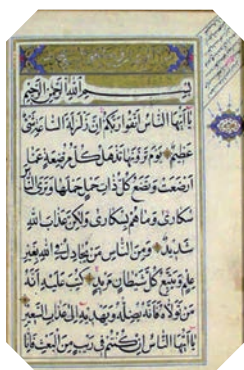 بِسْمِ اللهِ الرَّحْمٰنِ الرَّحِيمِ
يَا أَيُّهَا النَّاسُ اتَّقُوا رَبَّكُمْ إِنَّ زَلْزَلَةَ السَّاعَةِ شَيْءٌ
عَظِيمٌ يَوْمَ تَرَوْنَهَا تَذْهَلُ كُلُّ مُرْضِعَةٍ عَمَّا
أَرْضَعَتْ وَتَضَعُ كُلُّ ذَاتِ حَمْلٍ حَمْلَهَا وَتَرَى النَّاسَ
سُكَارَى وَمَا هُمْ بِسُكَارَى وَلَكِنَّ عَذَابَ اللهِ
شَدِيدٌ وَمِنَ النَّاسِ مَنْ يُجَادِلُ فِي اللهِ بِغَيْرِ
عِلْمٍ وَيَتَّبِعُ كُلَّ شَيْطَانٍ مَرِيدٍ كُتِبَ عَلَيْهِ أَنَّهُ
مَنْ تَوَلَّاهُ فَأَنَّهُ يُضِلُّهُ وَيَهْدِيهِ إِلَى عَذَابِ السَّعِيرِ
يَا أَيُّهَا النَّاسُ إِنْ كُنْتُمْ فِي رَيْبٍ مِنَ الْبَعْثِ فَإِنَّا